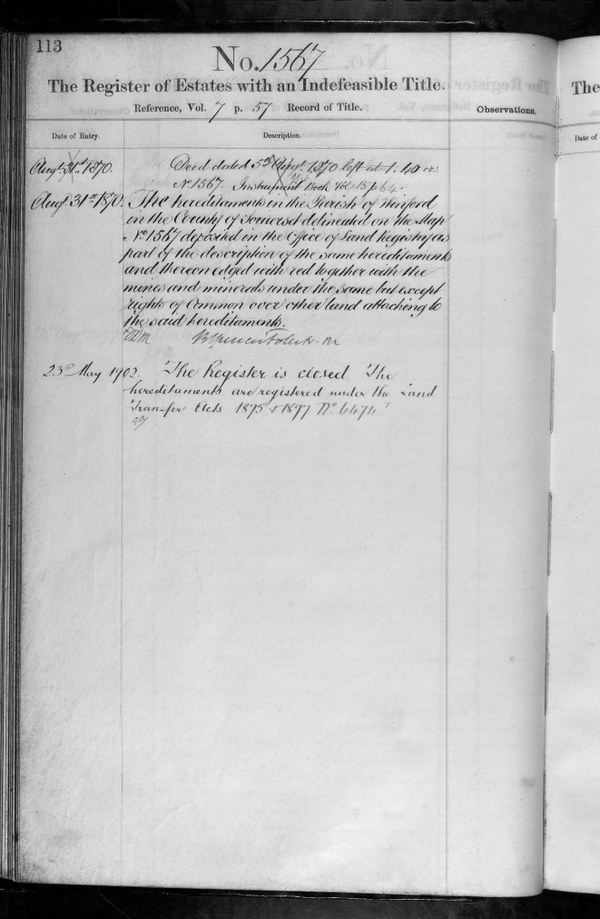 113
No. 1567
The Register of Estates with an Indefeasible Title.
Reference, Vol. 7 p. 57 Record of Title.
Observations.
Date of Entry.
Description.
Augt. 31st 1870.
Deed dated 5th Augt. 1870 left at 1.40 or
No. 1567. Instrument Book Vol 15 p 64.
Augt. 31st 1870.
The hereditaments in the Parish of Winford
in the County of Somerset delineated on the Map
No. 1567 deposited in the Office of Land Registry as
part of the description of the same hereditaments
and thereon edged with red together with the
mines and minerals under the same but except
rights of Common over other land attaching to
the said hereditaments.
23rd May 1902.
The Register is closed The
hereditaments are registered under the Land
Transfer Acts 1875 & 1897 No. 6674
The
Date of